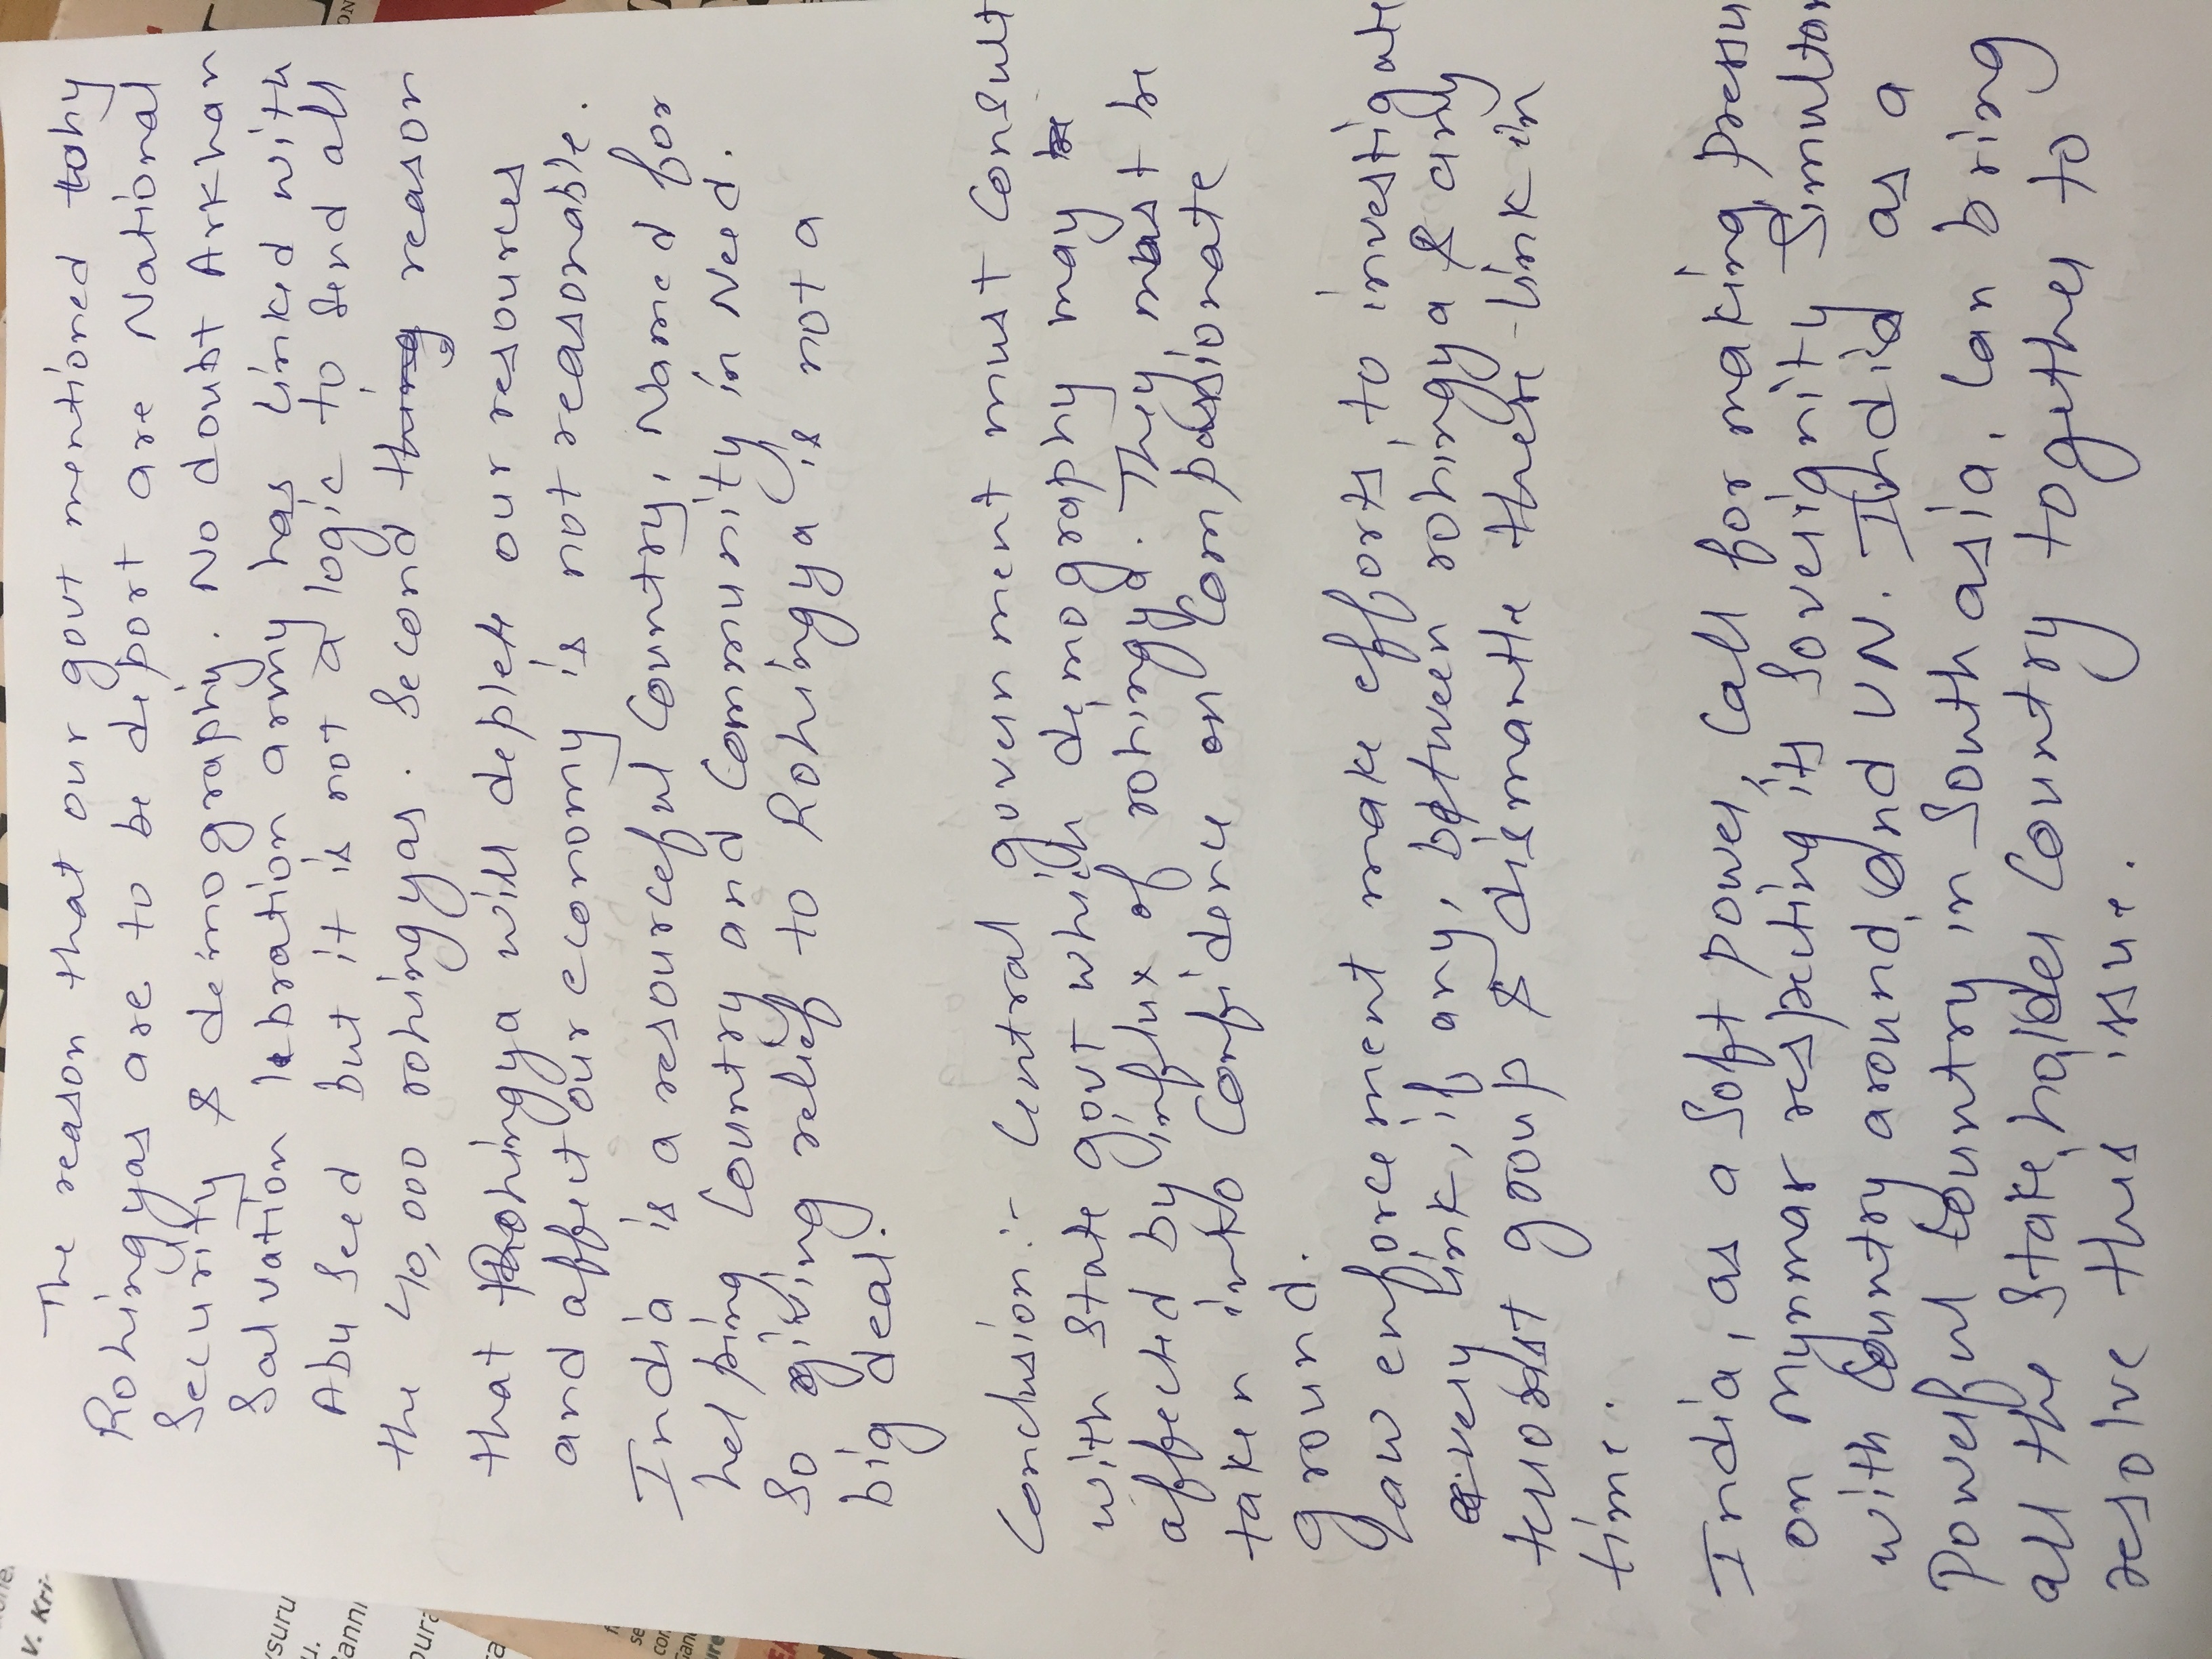 The reason that our govt mentioned why
Rohingyas are to be deport are National
Security & demography. No doubt Arkhan
Salvation lebration army has linked with
Abu Seed but it is not a logic to send all
the 40,000 rohingyas. Second thing reason
that Rohingya will deplete our resources
and affect our economy is not reasonable.
India is a resourceful country, Named for
helping Country and Community in Need.
So giving relief to Rohingya is not a
big deal.
Conclusion :- Central government must consult
with state govt which demography may be
affected by influx of rohingya. They must be
taken into confidence on compassionate
ground.
Law enforcement make efforts, to investigate
every link, if any, between rohingya & any
terrorist group & dismantle there link in
time.
India, as a soft power, call for making pressu
on Mynmar respecting its soveignity simultan
with country around, and UN. India as a
Powerful Country in South asia, can bring
all the Stake, holder Country together to
resolve this issue.
V. Kri-
ysuru
u.
anni
oura
ra